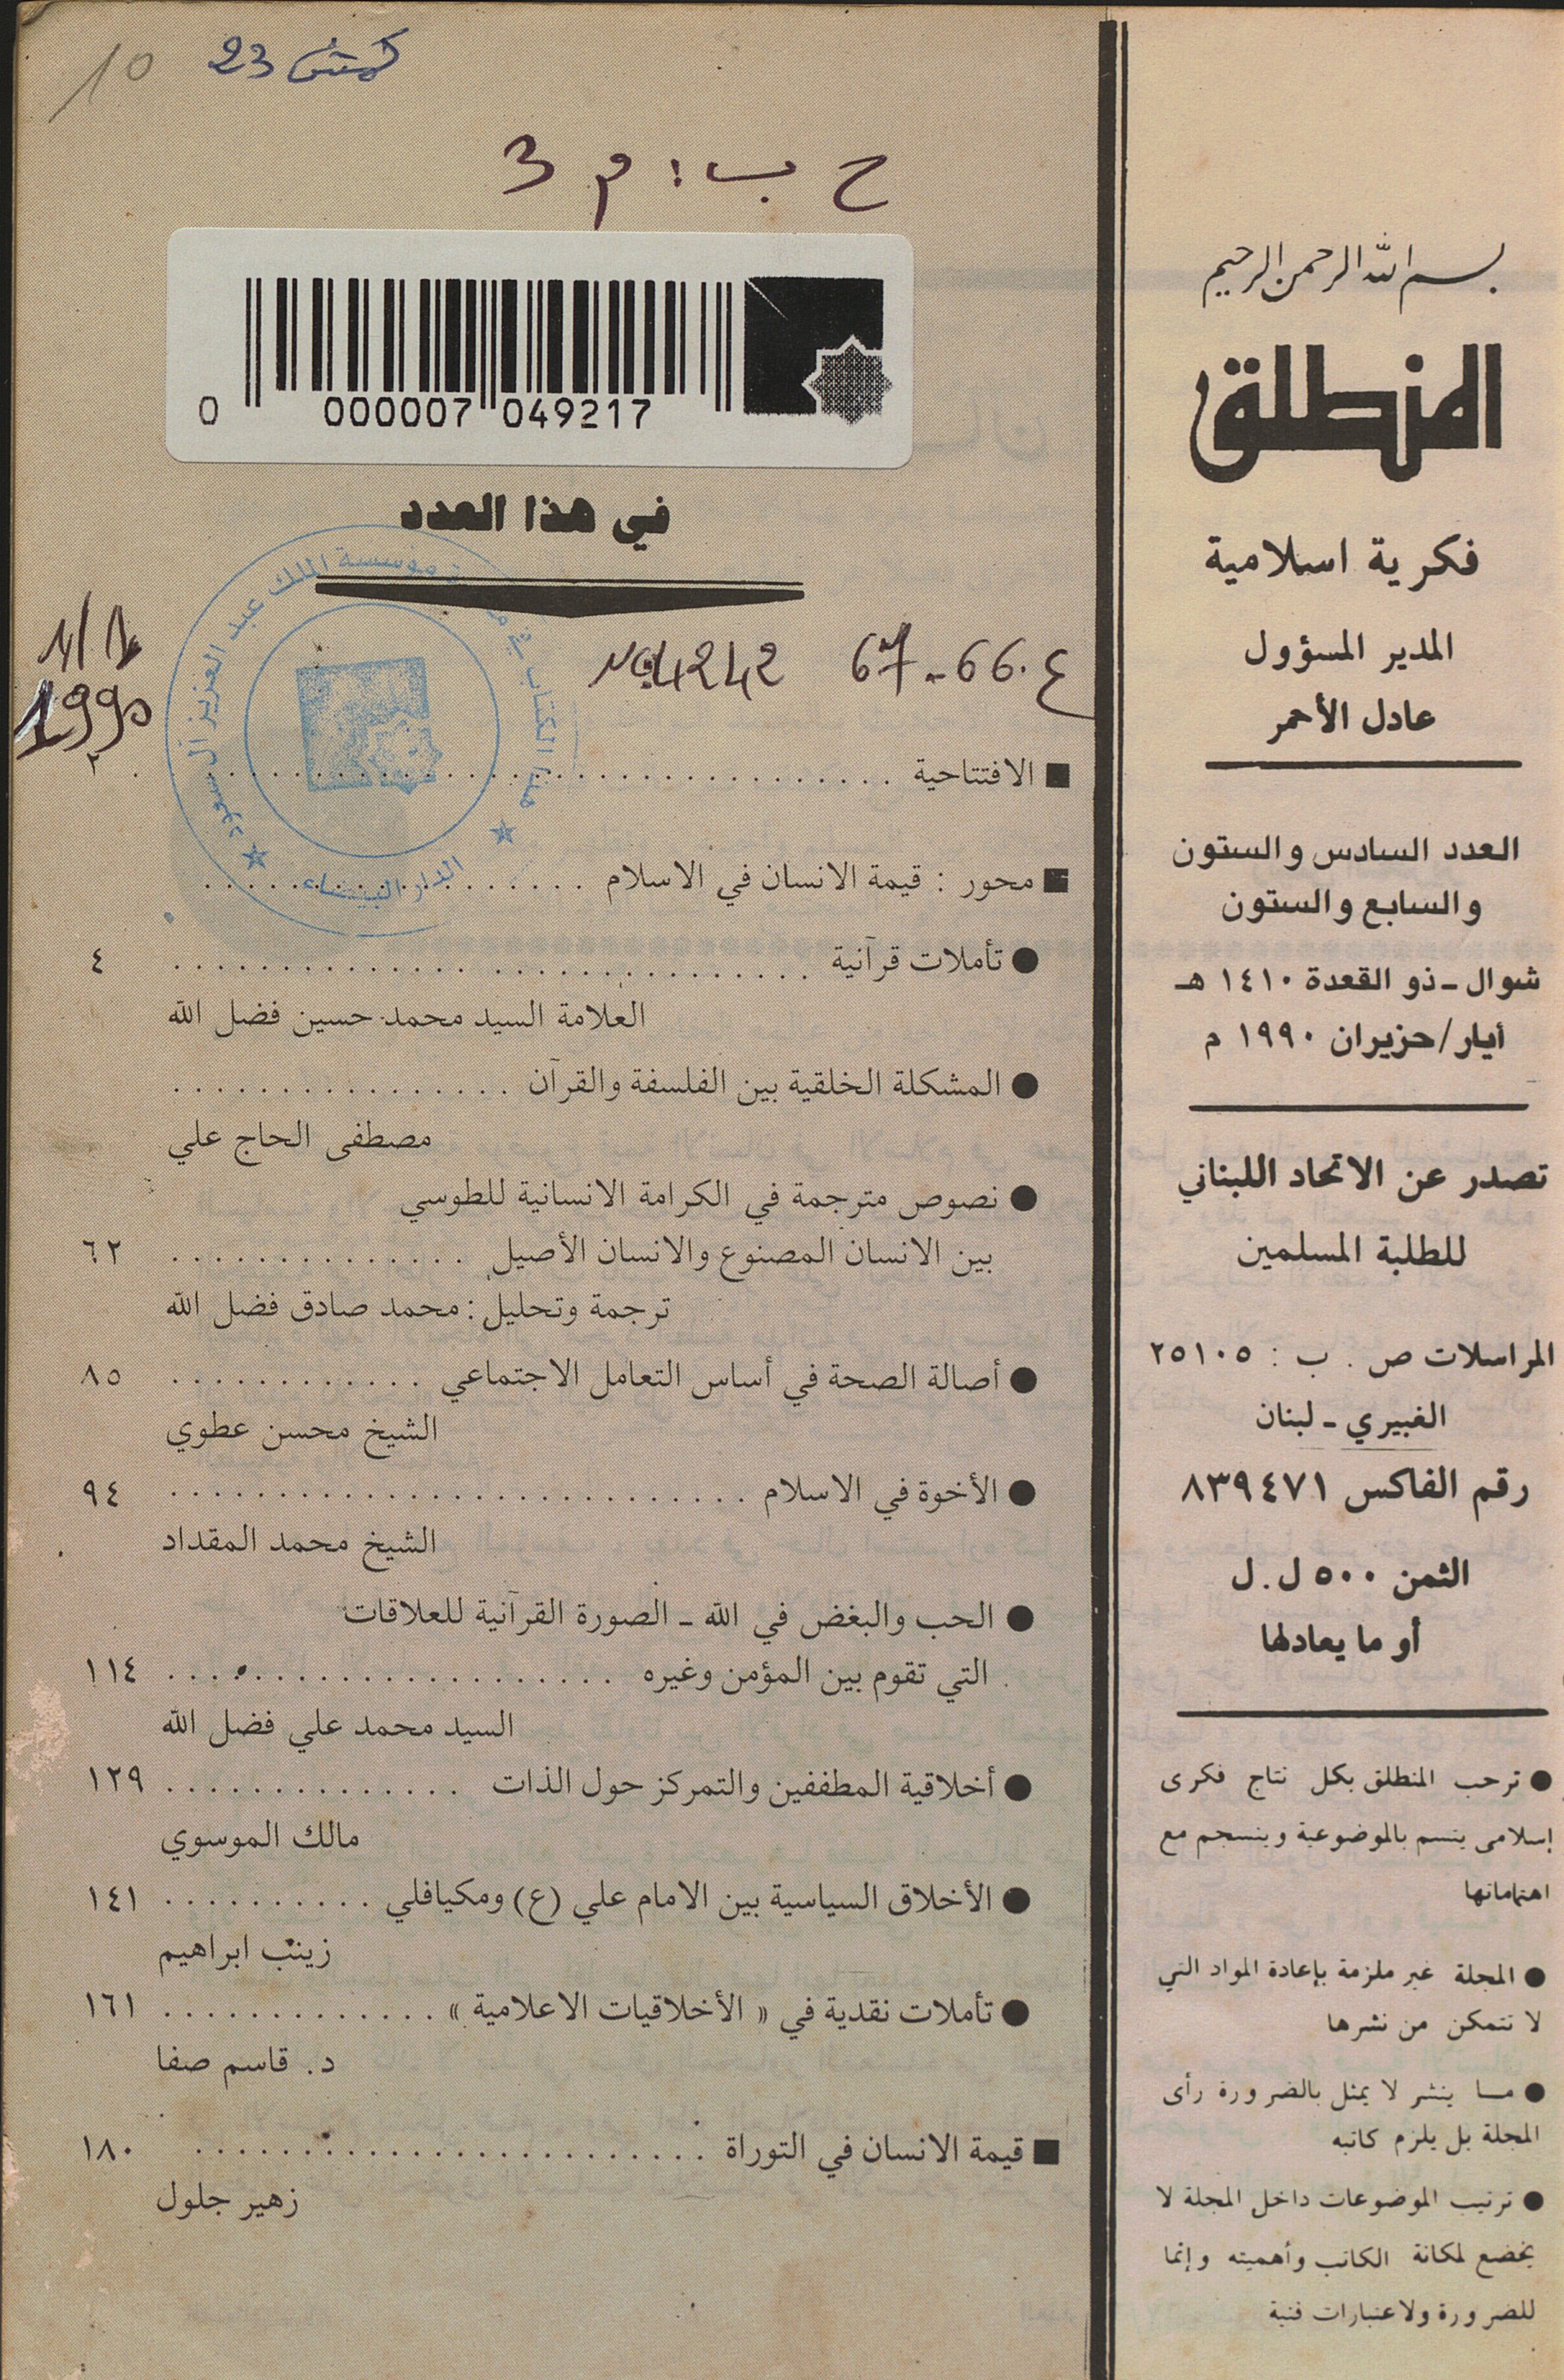 بسم الله الرحمن الرحيم
المنطلق
فكرية اسلامية
المدير المسؤول
عادل الأحمر
العدد السادس والستون
والسابع والستون
شوال ـ ذو القعدة ١٤١٠ هـ
أيار/حزيران ١٩٩٠ م
تصدر عن الاتحاد اللبناني
للطلبة المسلمين
المراسلات ص . ب : ٢٥١٠٥
الغبيري ـ لبنان
رقم الفاكس ٨٣٩٤٧١
الثمن ٥٠٠ ل.ل
أو ما يعادلها
● ترحب المنطلق بكل نتاج فكرى
إسلامى يتسم بالموضوعية وينسجم مع
اهتماماتها
● المجلة غير ملزمة بإعادة المواد التي
لا تتمكن من نشرها
● ما ينشر لا يمثل بالضرورة رأى
المجلة بل يلزم كاتبه
● ترتيب الموضوعات داخل المجلة لا
يخضع لمكانة الكاتب وأهميته وإنما
للضرورة ولاعتبارات فنية
10
23
ح ب : م 3
0 000007 049217
في هذا العدد
مؤسسة الملك عبد العزيز آل سعود
الدار البيضاء
ع .66-67 4242
1990
■ الافتتاحية . . . . . . . . . . . . . . . . . . . . ٢
■ محور : قيمة الانسان في الاسلام . . . . . . . . . . . . . .
● تأملات قرآنية . . . . . . . . . . . . . . . . . . . . ٤
العلامة السيد محمد حسين فضل الله
● المشكلة الخلقية بين الفلسفة والقرآن . . . . . . . . . . . . . .
مصطفى الحاج علي
● نصوص مترجمة في الكرامة الانسانية للطوسي
بين الانسان المصنوع والانسان الأصيل . . . . . . . . . . . . . . ٦٢
ترجمة وتحليل : محمد صادق فضل الله
● أصالة الصحة في أساس التعامل الاجتماعي . . . . . . . . . . . . ٨٥
الشيخ محسن عطوي
● الأخوة في الاسلام . . . . . . . . . . . . . . . . . . . . ٩٤
الشيخ محمد المقداد
● الحب والبغض في الله ـ الصورة القرآنية للعلاقات
التي تقوم بين المؤمن وغيره . . . . . . . . . . . . . . . . ١١٤
السيد محمد علي فضل الله
● أخلاقية المطففين والتمركز حول الذات . . . . . . . . . . . . . . ١٢٩
مالك الموسوي
● الأخلاق السياسية بين الامام علي (ع) ومكيافلي . . . . . . . . . . ١٤١
زينب ابراهيم
● تأملات نقدية في « الأخلاقيات الاعلامية » . . . . . . . . . . . . . ١٦١
د. قاسم صفا
■ قيمة الانسان في التوراة . . . . . . . . . . . . . . . . . . . ١٨٠
زهير جلول